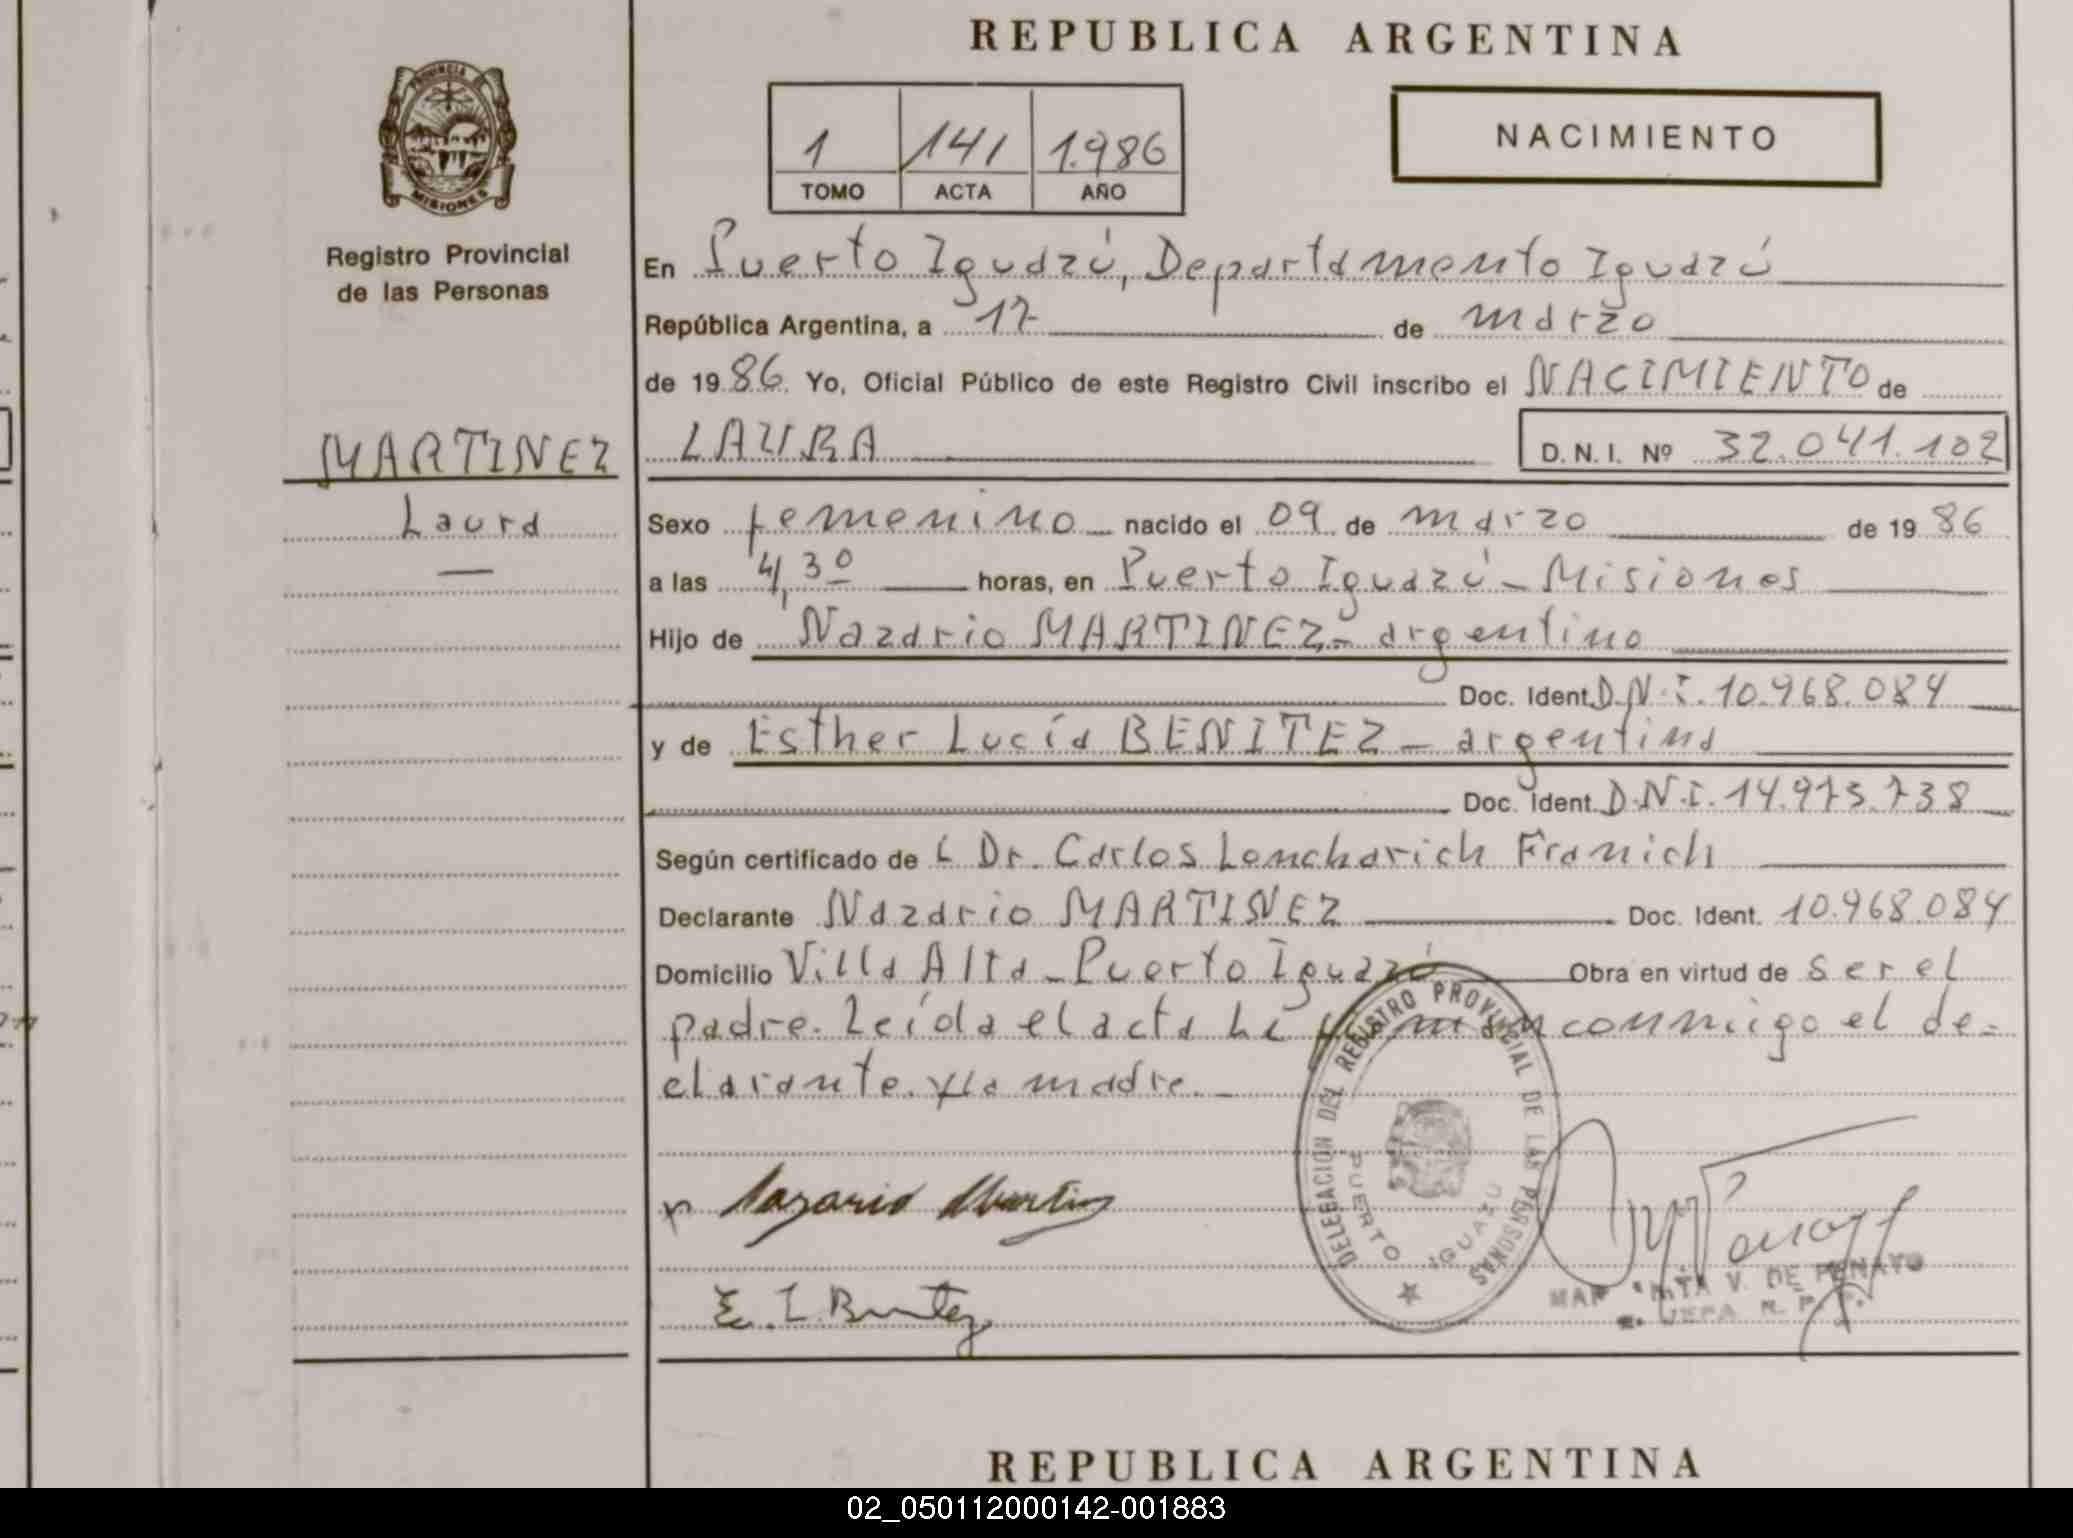 REPUBLICA ARGENTINA
PROVINCIA DE
MISIONES
Registro Provincial
de las Personas
1 141 1.986
TOMO ACTA AÑO
NACIMIENTO
En Puerto Iguazú, Departamento Iguazú
República Argentina, a 17 de marzo
de 1986. Yo, Oficial Público de este Registro Civil inscribo el NACIMIENTO de
MARTINEZ
Laura
LAURA D.N.I. Nº 32.041.102
Sexo femenino nacido el 09 de marzo de 1986
a las 4,30 horas, en Puerto Iguazú - Misiones
Hijo de Nazario MARTINEZ - argentino
Doc. Ident. D.N.I. 10.968.084
y de Esther Lucía BENITEZ - argentina
Doc. Ident. D.N.I. 14.975.738
Según certificado de L Dr. Carlos Loncharich Franich
Declarante Nazario MARTINEZ Doc. Ident. 10.968.084
Domicilio Villa Alta - Puerto Iguazú Obra en virtud de ser el
padre. Leída el acta conmigo el de-
clarante y la madre. -
DELEGACION DEL REGISTRO PROVINCIAL DE LAS PERSONAS
PUERTO IGUAZU
Nazario Martinez
E. L. Benitez
V. DE PENAYO
REPUBLICA ARGENTINA
02_050112000142-001883